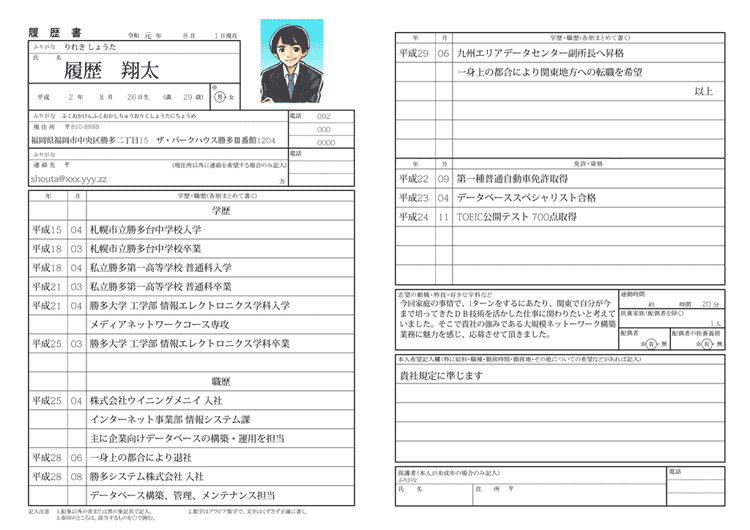 履歴書
令和 元 年 8 月 1 日現在
ふりがな りれき しょうた
氏 名
履歴 翔太
平成 2 年 8 月 26 日生 (満 29 歳)
※
男・女
ふりがな ふくおかけんふくおかしちゅうおうくしょうたにちょうめ
現住所 〒810-8888
福岡県福岡市中央区勝多二丁目15 ザ・パークハウス勝多Ⅲ番館1204
電話 092
000
0000
ふりがな
連絡先 〒 (現住所以外に連絡を希望する場合のみ記入)
shouta@xxx.yyy.zz 方
電話
年 月 学歴・職歴(各別まとめて書く)
学歴
平成15 04 札幌市立勝多台中学校入学
平成18 03 札幌市立勝多台中学校卒業
平成18 04 私立勝多第一高等学校 普通科入学
平成21 03 私立勝多第一高等学校 普通科卒業
平成21 04 勝多大学 工学部 情報エレクトロニクス学科入学
メディアネットワークコース専攻
平成25 03 勝多大学 工学部 情報エレクトロニクス学科卒業
職歴
平成25 04 株式会社ウイニングメニイ 入社
インターネット事業部 情報システム課
主に企業向けデータベースの構築・運用を担当
平成28 06 一身上の都合により退社
平成28 08 勝多システム株式会社 入社
データベース構築、管理、メンテナンス担当
記入注意 1.鉛筆以外の青または黒の筆記具で記入。 2.数字はアラビア数字で、文字はくずさず正確に書く。
3.※印のところは、該当するものを○で囲む。
年 月 学歴・職歴(各別まとめて書く)
平成29 06 九州エリアデータセンター副所長へ昇格
一身上の都合により関東地方への転職を希望
以上
年 月 免許・資格
平成22 09 第一種普通自動車免許取得
平成23 04 データベーススペシャリスト合格
平成24 11 TOEIC公開テスト 700点取得
志望の動機・特技・好きな学科など
今回家庭の事情で、Iターンをするにあたり、関東で自分が今
まで培ってきたDB技術を活かした仕事に関わりたいと考えて
いました。そこで貴社の強みである大規模ネットーワーク構築
業務に魅力を感じ、応募させて頂きました。
通勤時間
約 時間 20 分
扶養家族(配偶者を除く)
1人
配偶者
※有・無
配偶者の扶養義務
※有・無
本人希望記入欄(特に給料・職種・勤務時間・勤務地・その他についての希望などがあれば記入)
貴社規定に準じます
保護者(本人が未成年の場合のみ記入)
ふりがな
氏 名 住 所 〒
電話